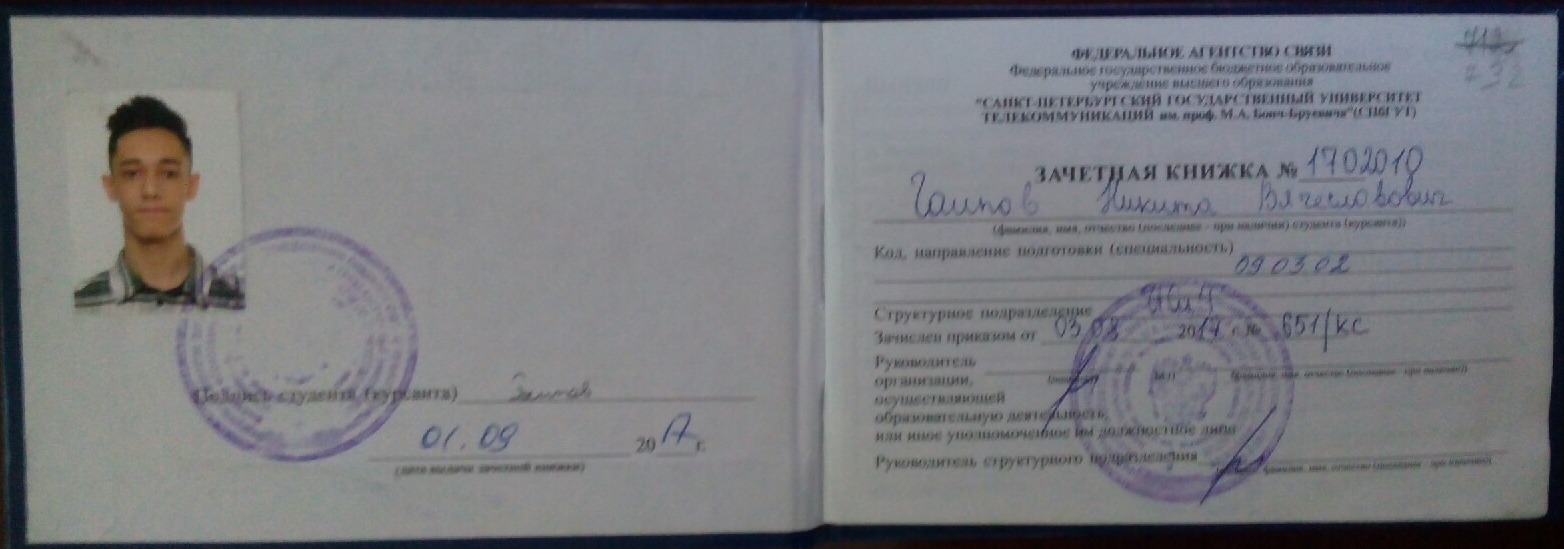 Подпись студента (курсанта)
01.09 2017 г.
(дата выдачи зачетной книжки)
232
ФЕДЕРАЛЬНОЕ АГЕНТСТВО СВЯЗИ
Федеральное государственное бюджетное образовательное
учреждение высшего образования
"САНКТ-ПЕТЕРБУРГСКИЙ ГОСУДАРСТВЕННЫЙ УНИВЕРСИТЕТ
ТЕЛЕКОММУНИКАЦИЙ им. проф. М.А. Бонч-Бруевича"(СПбГУТ)
ЗАЧЕТНАЯ КНИЖКА № 1702010
Никита Вячеславович
(фамилия, имя, отчество (последнее - при наличии) студента (курсанта))
Код, направление подготовки (специальность)
09 03 02
Структурное подразделение
Зачислен приказом от 03.08 2017 г. № 651/кс
Руководитель
организации,
(подпись) М.П. (фамилия, имя, отчество (последнее - при наличии))
осуществляющей
образовательную деятельность,
или иное уполномоченное им должностное лицо
Руководитель структурного подразделения
(подпись) фамилия, имя, отчество (последнее - при наличии)